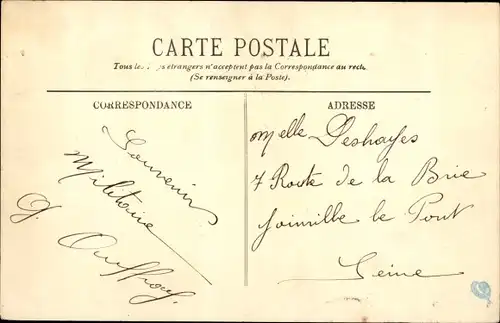 CARTE POSTALE
Tous les pays étrangers n'acceptent pas la Correspondance au recto
(Se renseigner à la Poste).
CORRESPONDANCE
Souvenir
Militaire
G.
ADRESSE
Melle Deshayes
7 Route de la Brie
Joinville le Pont
Seine